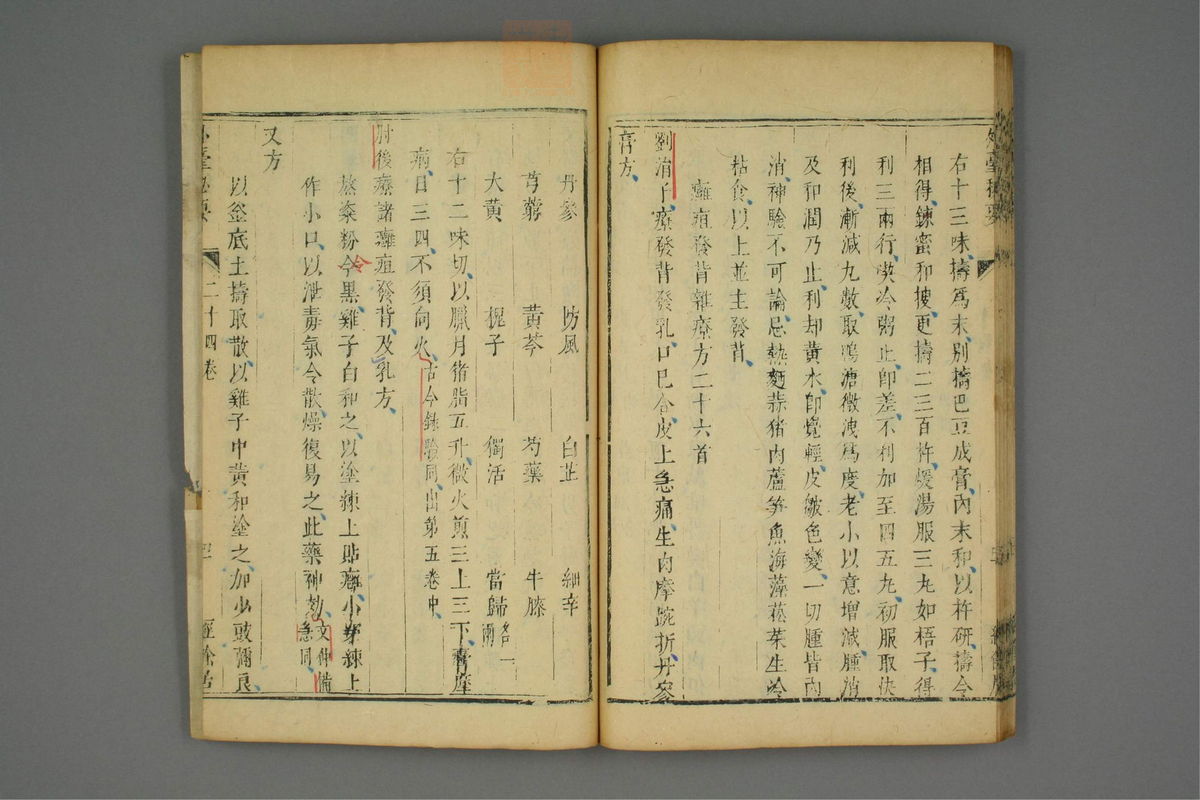 右十三味擣爲末別擣巴豆成膏內末和以杵研擣令
相得鍊蜜和擣更擣二三百杵煖湯服三丸如梧子得
利三兩行喫冷粥止卽差不利加至四五丸初服取快
利後漸減丸數取鴨溏微洩爲度老小以意增減腫消
及和潤乃止利却黃水卽覺輕皮皺色變一切腫皆內
消神驗不可論忌熱麪蒜猪肉蘆笋魚海藻菘菜生冷
粘食以上並主發背
癰疽發背雜療方二十六首
劉涓子療發背發乳口已合皮上急痛生肉摩踠折丹參
膏方
丹參 防風 白芷 細辛
芎藭 黃芩 芍藥 牛膝
大黃 槐子 獨活 當歸各一兩
右十二味切以臘月猪脂五升微火煎三上三下膏摩
病日三四不須向火古今錄驗同出第五卷中
肘後療諸癰疽發背及乳方
熬粢粉令黑雞子白和之以塗練上貼癰小穿練上
作小口以泄毒氣令散燥復易之此藥神効文仲備急同
又方
以釜底土擣取散以雞子中黃和塗之加少豉彌良
二十四卷
經餘居